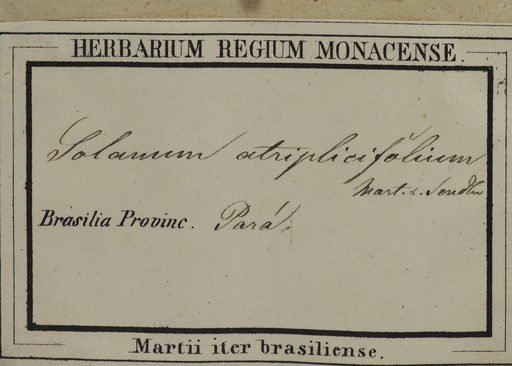 HERBARIUM REGIUM MONACENSE.
Solanum atriplicifolium
Mart. & Sendtn
Brasilia Provinc. Pará.
Martii iter brasiliense.